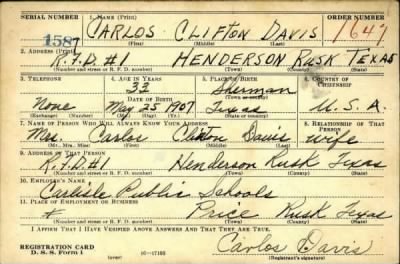 SERIAL NUMBER 1. NAME (Print) ORDER NUMBER
1587 CARLOS CLIFTON DAVIS 1647
(First) (Middle) (Last)
2. ADDRESS (Print)
R.F.D #1 HENDERSON RUSK TEXAS
(Number and street or R. F. D. number) (Town) (County) (State)
3. TELEPHONE 4. AGE IN YEARS 5. PLACE OF BIRTH 6. COUNTRY OF CITIZENSHIP
33 Sherman
DATE OF BIRTH (Town or county)
None May 25 1907 Texas U.S.A.
(Exchange) (Number) (Mo.) (Day) (Yr.) (State or country)
7. NAME OF PERSON WHO WILL ALWAYS KNOW YOUR ADDRESS 8. RELATIONSHIP OF THAT PERSON
Mrs. Carlos Clifton Davis wife
(Mr., Mrs., Miss) (First) (Middle) (Last)
9. ADDRESS OF THAT PERSON
R.F.D.#1 Henderson Rusk Texas
(Number and street or R. F. D. number) (Town) (County) (State)
10. EMPLOYER'S NAME
Carlisle Public Schools
11. PLACE OF EMPLOYMENT OR BUSINESS
Price Rusk Texas
(Number and street or R. F. D. number) (Town) (County) (State)
I AFFIRM THAT I HAVE VERIFIED ABOVE ANSWERS AND THAT THEY ARE TRUE.
REGISTRATION CARD
D. S. S. Form 1 (over) 16—17105 Carlos Davis